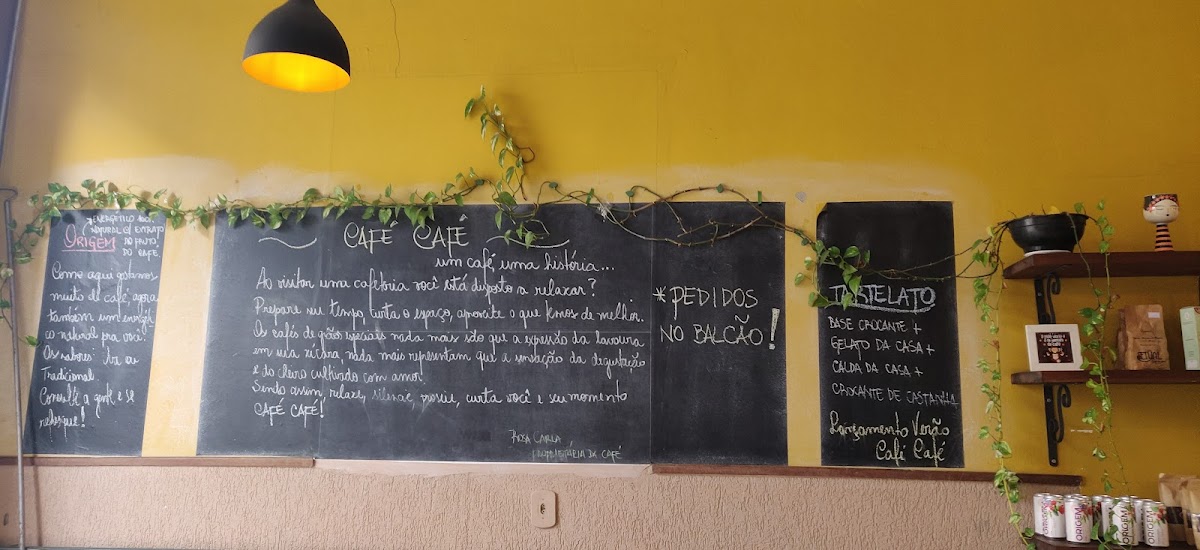 ORIGEM
NATURAL
DO CAFÉ.
Como aqui gostamos
muito de café, agora
também um energéti
co natural pra você.
Os sabores:
Tradicional
Consulte a gente e se
CAFÉ CAFÉ
um café, uma história...
Ao visitar uma cafeteria você está disposto a relaxar?
Prepare seu tempo, curta o espaço, aproveite o que temos de melhor.
Os cafés de grãos especiais nada mais são que a expressão da lavoura
em uma xícara, nada mais representam que a sensação da degustação
e do cheiro cultivado com amor.
Sendo assim, relaxe, silencie, procure, curta você e seu momento
CAFÉ CAFÉ!
ROSA CARLA
PROPRIETÁRIA DA CAFÉ
* PEDIDOS
NO BALCÃO!
TARTELATO
BASE CROCANTE +
GELATO DA CASA +
CALDA DA CASA +
CROCANTE DE CASTANHA
Lançamento Verão
Café Café
ORIGEM
ORIGEM
ORIGEM